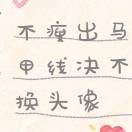 不瘦出马
甲线决不
换头像